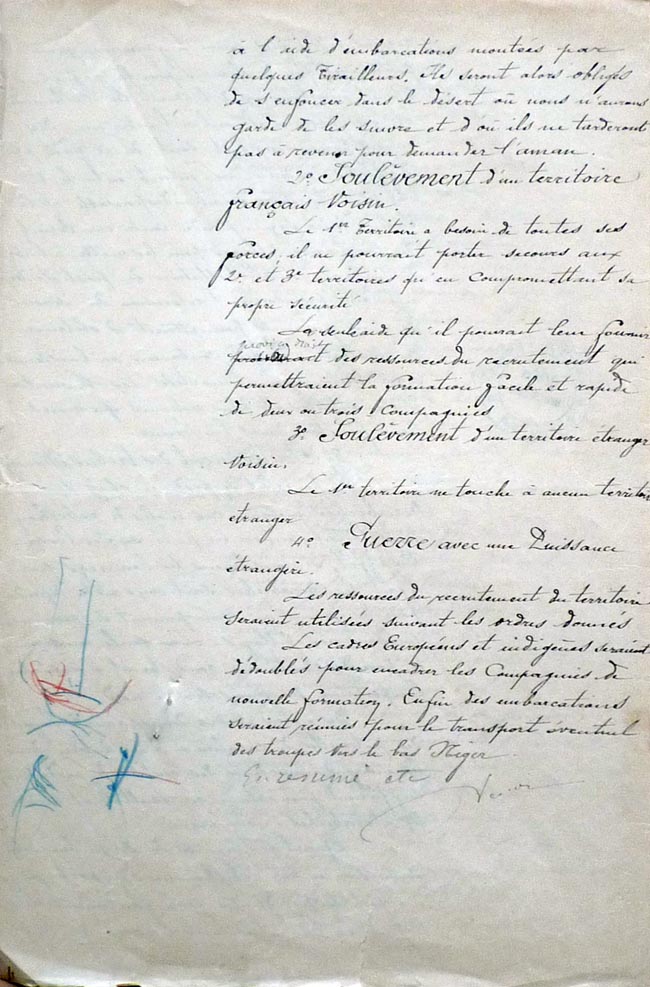 à l'aide d'embarcations montées par
quelques Tirailleurs. Ils seront alors obligés
de s'enfoncer dans le désert où nous n'aurons
garde de les suivre et d'où ils ne tarderont
pas à revenir pour demander l'aman.
2º Soulèvement d'un territoire
français Voisin.
Le 1er Territoire a besoin de toutes ses
forces, il ne pourrait porter secours aux
2e et 3e territoires qu'en compromettant sa
propre sécurité
La seule aide qu'il pourrait leur fournir
proviendrait
des ressources du recrutement qui
permettraient la formation facile et rapide
de deux ou trois Compagnies
3º Soulèvement d'un territoire étranger
Voisin.
Le 1er territoire ne touche à aucun territoire
étranger
4º Guerre avec une Puissance
étrangère.
Les ressources du recrutement du territoire
seraient utilisées suivant les ordres donnés
Les cadres Européens et indigènes seraient
dédoublés pour encadrer les Compagnies de
nouvelle formation. Enfin des embarcations
seraient réunies pour le transport éventuel
des troupes vers le bas Niger
En résumé etc